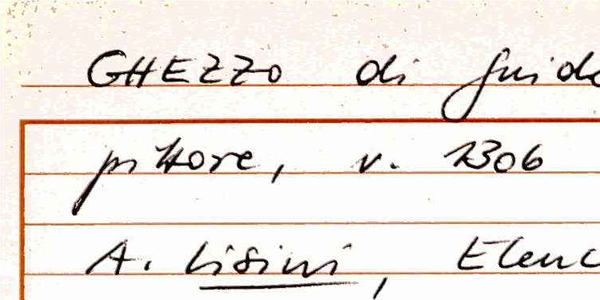 GHEZZO di Guido
pittore, v. 1306
A. Lisini, Elenc